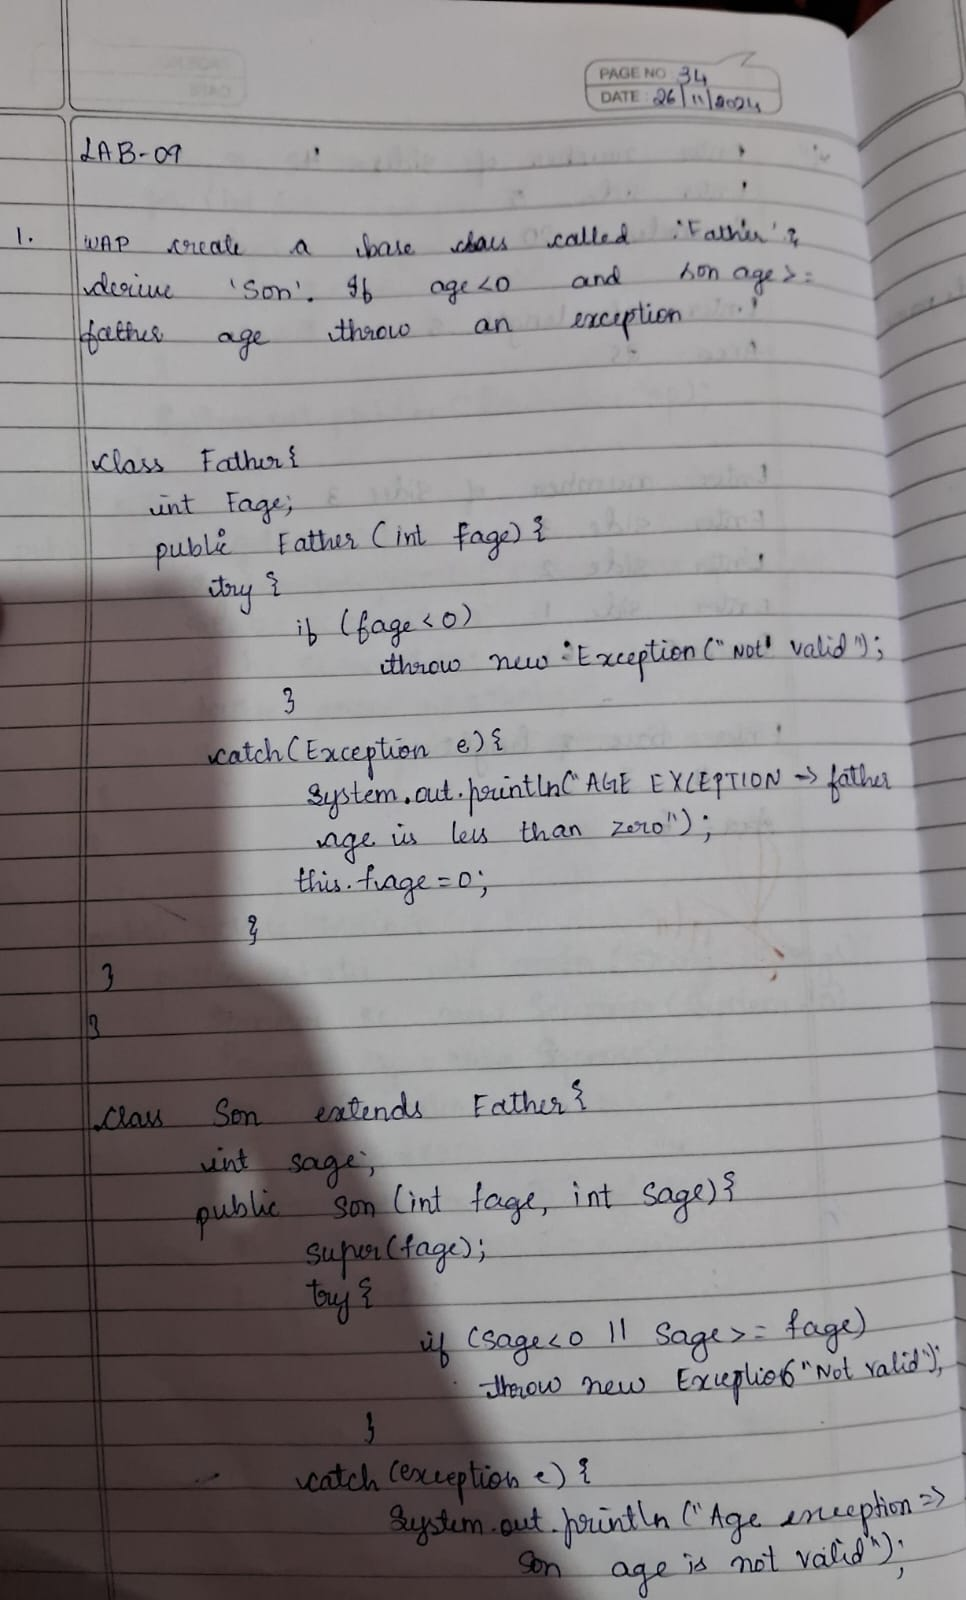 PAGE NO 34
DATE: 26/11/2024
LAB-09
1. WAP create a base class called 'Father' &
derive 'Son'. If age<0 and son age>=
father age throw an exception
class Father{
int Fage;
public Father (int fage) {
try {
if (fage<0)
throw new Exception ("Not valid");
}
catch (Exception e) {
System.out.println("AGE EXCEPTION => father
age is less than zero");
this.fage=0;
}
}
}
class Son extends Father {
int sage;
public Son (int fage, int sage) {
super(fage);
try {
if (sage<0 || sage>= fage)
throw new Exception("Not valid");
}
catch (exception e) {
System.out.println ("Age exception =>
Son age is not valid");